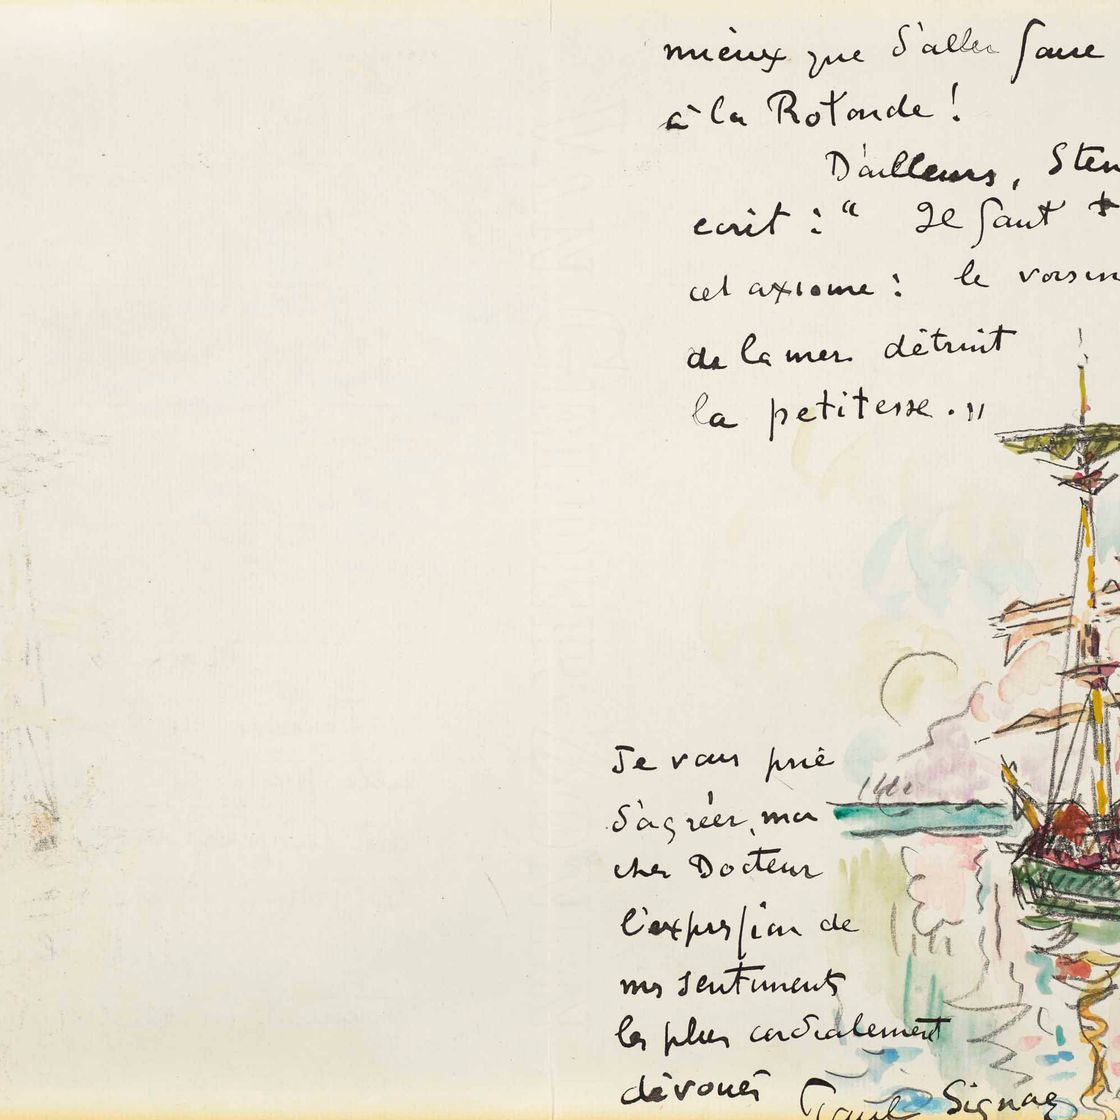 mieux que d'aller faire
à la Rotonde !
D'ailleurs, Sten
ecrit : " Il faut
cet axiome : le voisin
de la mer détruit
la petitesse . "
Je vous prie
d'agréer, mon
cher Docteur
l'expression de
mes sentiments
les plus cordialement
dévoués Paul Signac